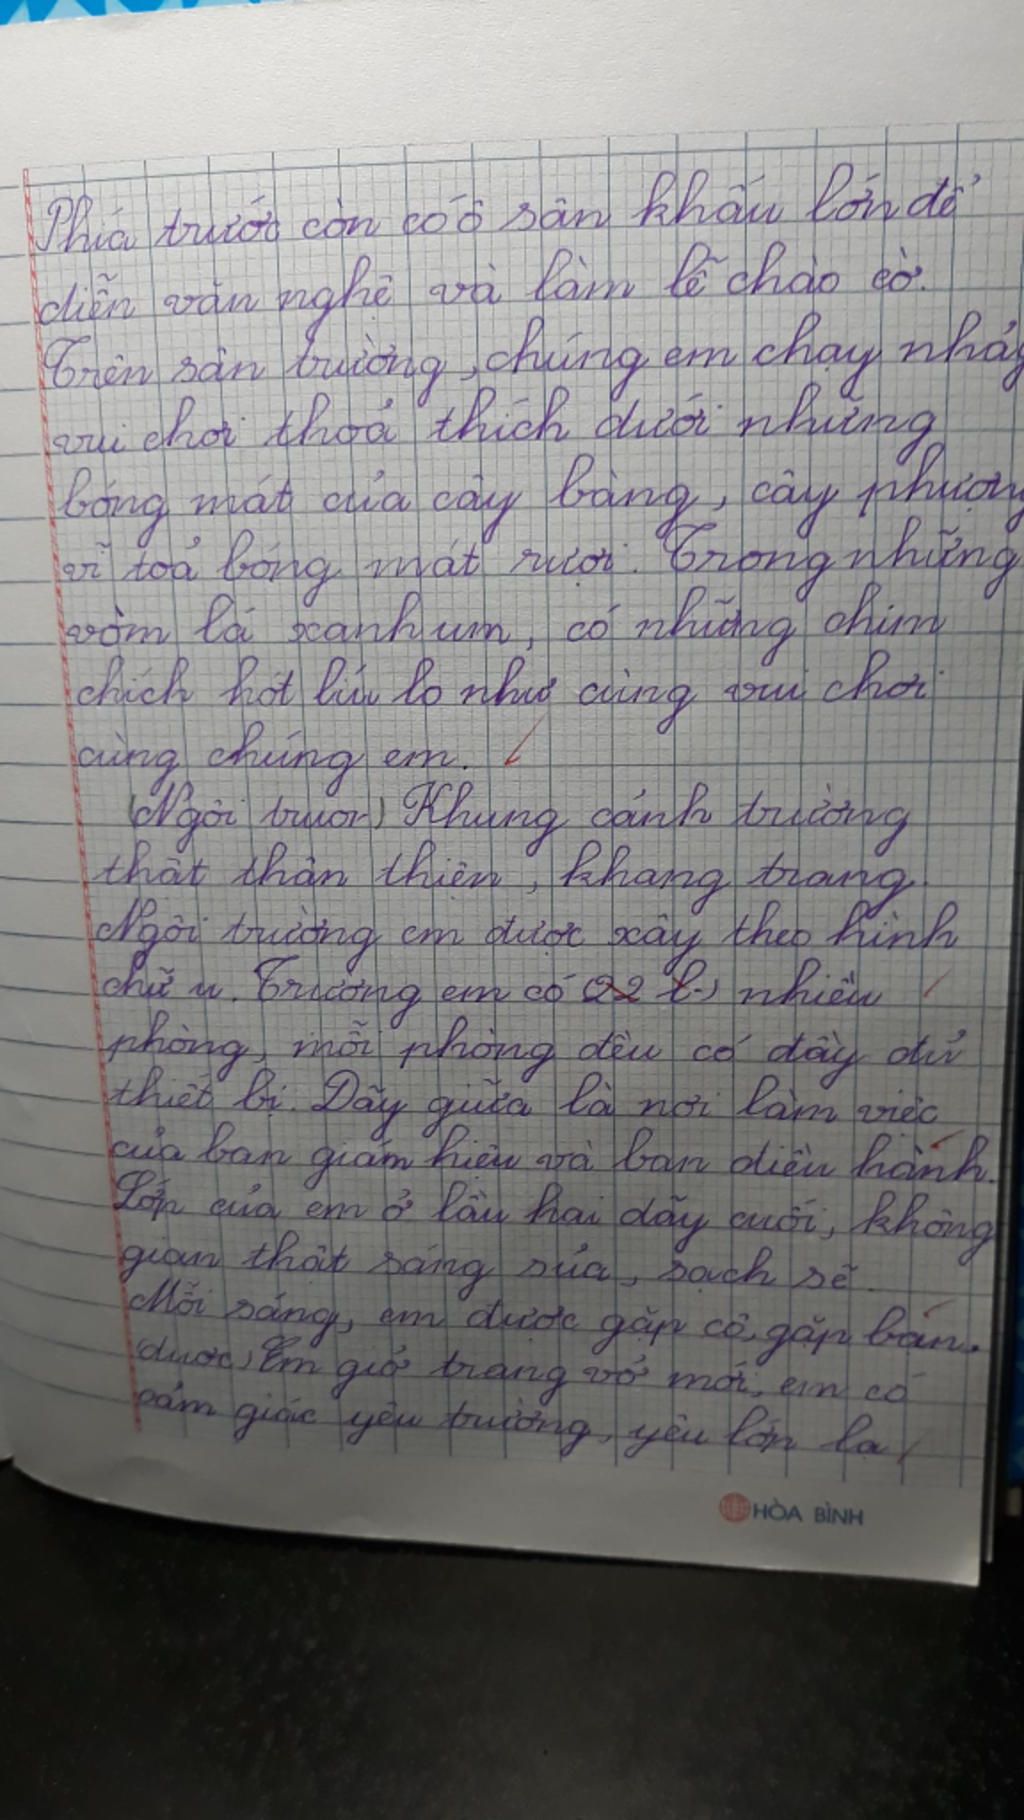 Phía trước còn có ô sân khấu lớn để
diễn văn nghệ và làm lễ chào cờ.
Trên sân trường, chúng em chạy nhảy
vui chơi thoả thích dưới những
bóng mát của cây bàng, cây phượng
vĩ toả bóng mát rượi. Trong những
vòm lá xanh um, có những chim
chích hót líu lo như cùng vui chơi
cùng chúng em.
(Ngôi trươr) Khung cảnh trường
thật thân thiện, khang trang.
Ngôi trường em được xây theo hình
chữ u. Trường em có (22 l) nhiều
phòng, mỗi phòng đều có đầy đủ
thiết bị. Dãy giữa là nơi làm việc
của ban giám hiệu và ban điều hành.
Lớp của em ở lầu hai dãy cuối, không
gian thật sáng sủa, sạch sẽ.
Mỗi sáng, em được gặp cô, gặp bạn.
được) Em giở trang vở mới, em có
cảm giác yêu trường, yêu lớp lạ
HÒA BÌNH